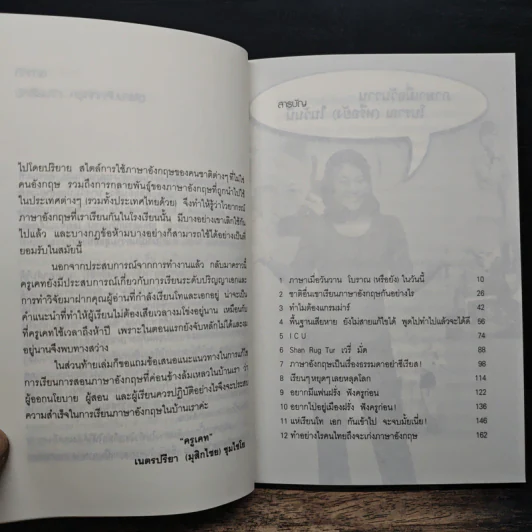 ไปโดยปริยาย สไตล์การใช้ภาษาอังกฤษของคนชาติต่างๆ ที่ไม่ใช่
คนอังกฤษ รวมถึงการกลายพันธุ์ของภาษาอังกฤษที่ถูกนำไปใช้
ในประเทศต่างๆ (รวมทั้งประเทศไทยด้วย) จึงทำให้รู้ว่าไวยากรณ์
ภาษาอังกฤษที่เราเรียนกันในโรงเรียนนั้น มีบางอย่างเขาเลิกใช้กัน
ไปแล้ว และบางกฎข้อห้ามบางอย่างก็สามารถใช้ได้อย่างเป็นที่
ยอมรับในสมัยนี้
นอกจากประสบการณ์จากการทำงานแล้ว กลับมาคราวนี้
ครูเคทยังมีประสบการณ์เกี่ยวกับการเรียนระดับปริญญาเอกและ
การทำวิจัยมาฝากคุณผู้อ่านที่กำลังเรียนโทและเอกอยู่ น่าจะเป็น
คำแนะนำที่ทำให้ผู้เรียนไม่ต้องเสียเวลางมโข่งอยู่นาน เหมือน
ที่ครูเคทใช้เวลาถึงห้าปี เพราะในตอนแรกยังจับหลักไม่ได้และงม
อยู่นานจึงพบทางสว่าง
ในส่วนท้ายเล่มก็ขอแถมข้อเสนอแนะแนวทางในการแก้ไข
การเรียนการสอนภาษาอังกฤษที่ค่อนข้างล้มเหลวในบ้านเรา ว่า
ผู้ออกนโยบาย ผู้สอน และผู้เรียนควรปฏิบัติอย่างไรจึงจะประสบ
ความสำเร็จในการเรียนภาษาอังกฤษในบ้านเราค่ะ
"ครูเคท"
เนตรปรียา (มุสิกไชย) ชุมไชโย
สารบัญ
1 ภาษาเมื่อวันวาน โบราณ (หรือยัง) ในวันนี้ 10
2 ชาติอื่นเขาเรียนภาษาอังกฤษกันอย่างไร 26
3 ทำไมต้องแกรมม่าร์ 42
4 พื้นฐานเสียหาย ยังไม่สายแก้ไขได้ พูดไปทำไปแล้วจะได้ดี 56
5 I C U 74
6 Shan Rug Tur เวรี่ มั่ด 88
7 ภาษาอังกฤษเป็นเรื่องธรรมดาอย่าซีเรียส! 98
8 เรียนๆ หยุดๆ เลยหลุดโลก 114
9 อยากมีแฟนฝรั่ง ฟังครูก่อน! 122
10 อยากไปอยู่เมืองฝรั่ง ฟังครูก่อน! 136
11 แห่เรียนโท เอก กันเข้าไป จะจบมั้ยเนี่ย! 146
12 ทำอย่างไรคนไทยถึงจะเก่งภาษาอังกฤษ 162